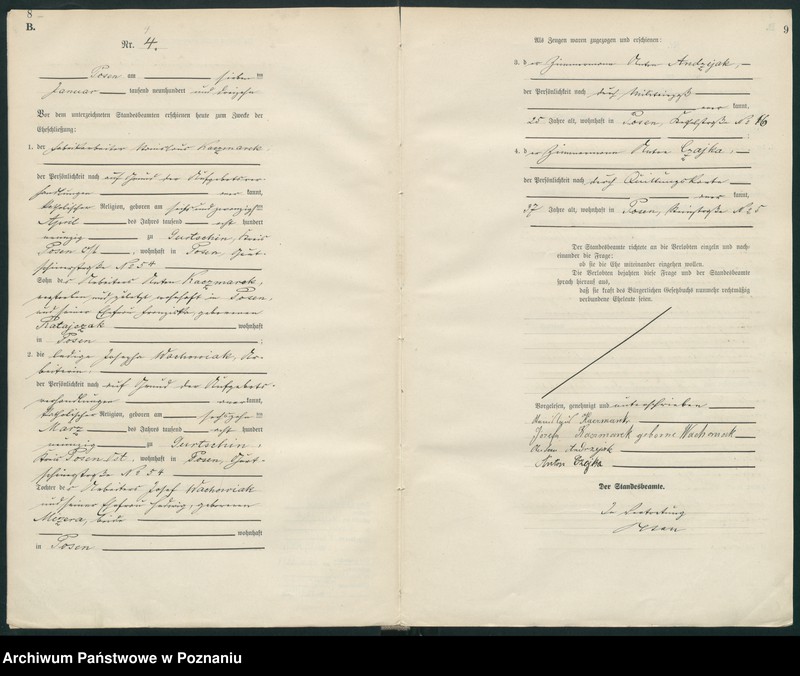 8
B.
Nr. 4.
Posen am sieben ten
Januar tausend neunhundert und dreizehn
Vor dem unterzeichneten Standesbeamten erschienen heute zum Zwecke der
Eheschließung:
1. der Fabrikarbeiter Stanislaus Kaczmarek,
der Persönlichkeit nach auf Grund der Aufgebotsver-
handlungen kannt,
katholischer Religion, geboren am sechsundzwanzigsten
April des Jahres tausend acht hundert
neunzig zu Gurtschin, Kreis
Posen Ost, wohnhaft in Posen, Gurt-
schinerstraße No 54
Sohn des Arbeiters Anton Kaczmarek,
verstorben und zuletzt wohnhaft in Posen,
und seiner Ehefrau Franziska, geborenen
Ratajczak wohnhaft
in Posen ;
2. die ledige Josepha Wachowiak, Ar-
beiterin,
der Persönlichkeit nach auf Grund der Aufgebots-
verhandlungen kannt,
katholischer Religion, geboren am sechszehn ten
März des Jahres tausend acht hundert
neunzig zu Gurtschin,
Kreis Posen Ost, wohnhaft in Posen, Gurt-
schinerstraße No 54
Tochter des Arbeiters Josef Wachowiak
und seiner Ehefrau Hedwig, geborenen
beide
wohnhaft
in Posen
9
Als Zeugen waren zugezogen und erschienen:
3. der Zimmermann Anton Andrzejak,
der Persönlichkeit nach durch Militärpaß
kannt,
25 Jahre alt, wohnhaft in Posen, No 16
4. der Zimmermann Anton Czajka,
der Persönlichkeit nach durch Quittungskarte
kannt,
37 Jahre alt, wohnhaft in Posen, No 5
Der Standesbeamte richtete an die Verlobten einzeln und nach-
einander die Frage:
ob sie die Ehe miteinander eingehen wollen.
Die Verlobten bejahten diese Frage und der Standesbeamte
sprach hierauf aus,
daß sie kraft des Bürgerlichen Gesetzbuchs nunmehr rechtmäßig
verbundene Eheleute seien.
Vorgelesen, genehmigt und unterschrieben
Kaczmarek
Kaczmarek geborne Wachowiak
Anton Andrzejak
Anton Czajka
Der Standesbeamte.
In Vertretung
Archiwum Państwowe w Poznaniu